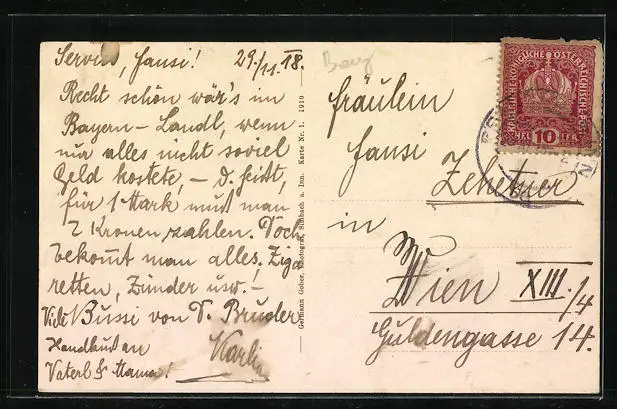 Servus, Fansi! 29./11.18.
Recht schön wär's im
Bayern-Landl, wenn
nur alles nicht soviel
Geld kostete, – d. heißt,
für 1 Mark muß man
2 Kronen zahlen. Doch
bekom̄t man alles! Ziga
retten, Zünder usw. –
Viele Bussi von D. Bruder
Handkuß an Karli
Vaterl & Mama!
Germann Gober, Photograf, Simbach a. Inn. Karte Nr. 1. 1910
Fräulein
Fansi
Zehetner
in
Wien XIII./4
Guldengasse 14.
KAISERLICHE KÖNIGLICHE ÖSTERREICHISCHE POST
HELLER 10